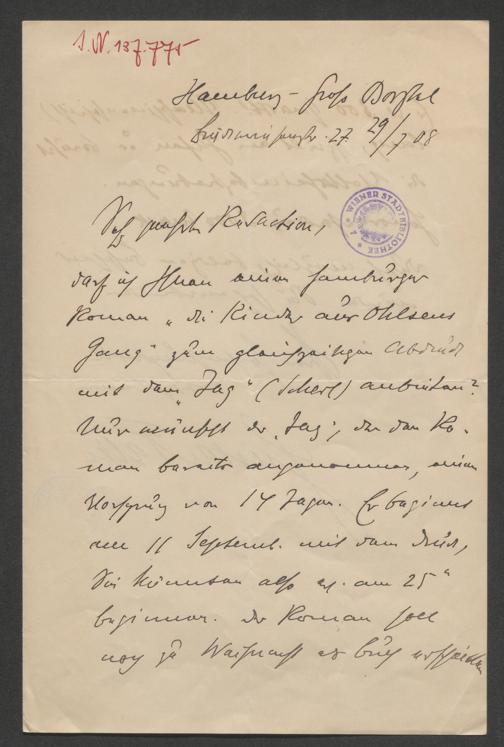 I.N. 137.775
Hamburg – Groß Borstel
27. 29/7 08
WIENER STADTBIBLIOTHEK
Sehr geehrte Redaction,
darf ich Ihnen meinen Hamburger
Roman „die Kinder aus Ohlsens
Gang“ zum gleichzeitigen Abdruck
mit dem „Tag“ (Scherl) anbieten?
Nur wünscht der „Tag“, der den Ro-
man bereits angenommen, einen
Vorsprung von 14 Tagen. Er beginnt
am 11 Septemb. mit dem Druck,
Sie könnten also am 25“
beginnen. Der Roman soll
noch zu Weihnacht als Buch erscheinen